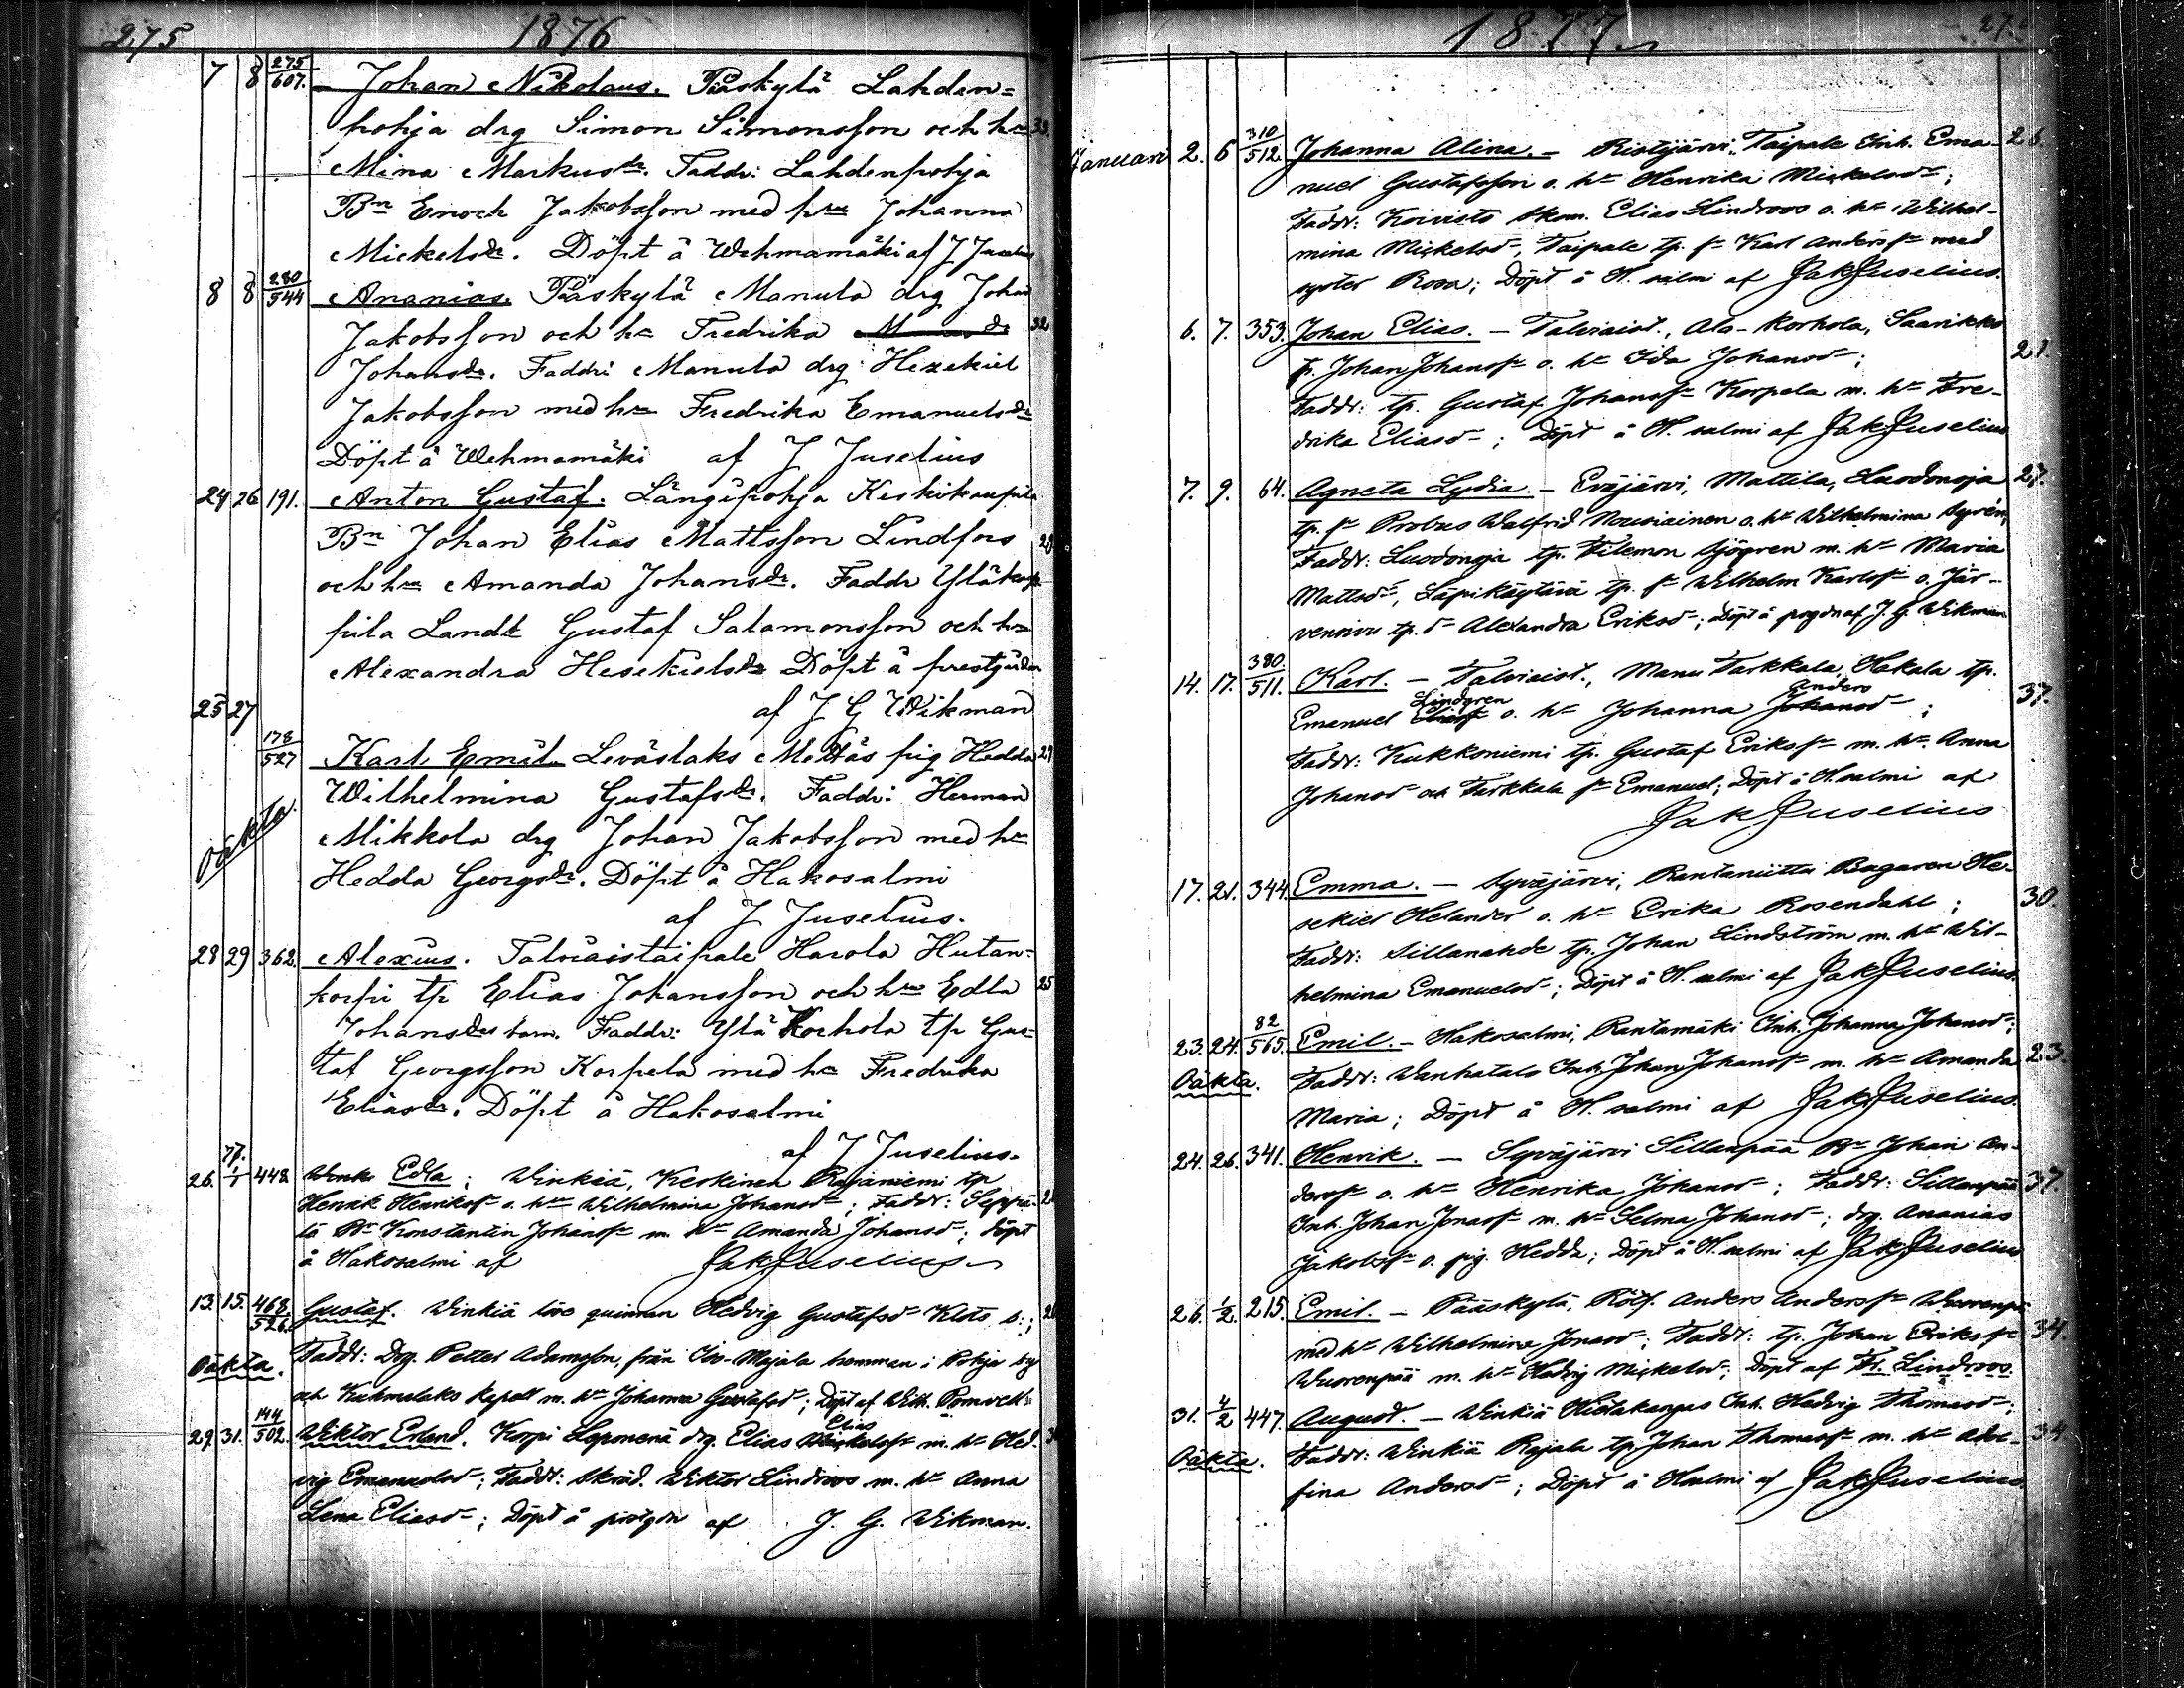 275 1876
7 8 275/607. Johan Nikolaus. Pääskylä Lahden=
pohja drg Simon Simonsson och hu 33.
Mina Markusdr. Faddr: Lahdenpohja
Bn Enoch Jakobsson med hu Johanna
Mickelsdr. Döpt å Wehmamäki af J Juselius
8 8 280/544 Ananias. Pääskylä Manula drg Johan
Jakobsson och hu Fredrika 32
Johansdr. Faddr: Manula drg Hezekiel
Jakobsson med hu Fredrika Emanuelsdr
Döpt å Wehmamäki af J Juselius
24 26 191. Anton Gustaf. Längipohja Keskikaupila
Bn Johan Elias Mattsson Lindfors 29
och hu Amanda Johansdr. Faddr Yläkaup
pila Landb Gustaf Salamonsson och hu
Alexandra Hesekielsdr Döpt å prestgården
25 27 af J G Wikman
178/527 Karl Emil. Leväslaks Mattas pig Hedda 29
Wilhelmina Gustafsdr. Faddr: Herman
oäkta. Mikkola drg Johan Jakobsson med hu
Hedda Georgsdr. Döpt å Hakosalmi
af J Juselius.
28 29 362. Alexius. Talviaistaipale Harola Hutan=
korpi tp Elias Johansson och hu Edla 25
Johansdrs barn. Faddr: Ylä Korhola tp Gus=
taf Georgsson Korpela med hu Fredrika
Eliasdr. Döpt å Hakosalmi
af J Juselius.
26. 77. 1/1 448. Edla; Winkiä, Keskinen Rajaniemi tp
Henrik Henriksn o. hu Wilhelmina Johansd; Faddr: Seppä-
lä Bn Konstantin Johansn m. hu Amanda Johansd; Döpt
å Hakosalmi af Jak Juselius
13. 15. 468/526. Gustaf. Winkiä lös qvinnan Hedvig Gustafsd Klots s.;
Oäkta. Faddr: Drg. Petter Adamsson, från Iso-Majala hemman i Pohja by
och Kuhmalaks kapell m. hu Johanna Gustafsd; Döpt af Wilh.
29. 31. 144/502. Wiktor Erland. Korpi Leponenä drg. Elias Elias Mickelsn m. hu Hed-
vig Emanuelsd; Faddr: Skräd. Wiktor Lindroos m. hu Anna
Lena Eliasd; Döpt å prstgdn af J. G. Wikman.
1877
Januari 2. 6 310/512. Johanna Alina. – Ristijärvi, Taipale Inh. Ema- 26.
nuel Gustafsson o. hu Henrika Mickelsd;
Faddr: Koivisto Skom. Elias Lindroos o. hu Wilhel-
mina Mickelsd, Taipale tp. sn Karl Anderssn med
syster Rosa; Döpt å H. salmi af Jak Juselius.
6. 7. 353. Johan Elias. – Talviaist., Ala-Korhola, Saarikko
tp. Johan Johanssn o. hu Ida Johansd; 21.
Faddr: tp. Gustaf Johanssn Korpela m. hu Fre-
drika Eliasd; Döpt å H. salmi af Jak Juselius
7. 9. 64. Agneta Lydia. – Eväjärvi, Mattila, Suodonoja 27.
tp. sn Probus Walfrid Nousiainen o. hu Wilhelmina Syrén;
Faddr: Suodonoja tp. Filemon Sjögren m. hu Maria
Mattsd, Säpikäytävä tp. sn Wilhelm Karlssn o. Jär-
vensivu tp. d Alexandra Eriksd; Döpt å prgdn af J. G. Wikman
14. 17. 380/511. Karl. – Talviaist., Manu Tarkkala, Hakala tp.
Emanuel Lindgren Eliassn o. hu Johanna Anders Johansd; 37.
Faddr: Kukkoniemi tp. Gustaf Erikssn m. hu. Anna
Johansd och Tarkkala sn Emanuel; Döpt å H. salmi af
Jak Juselius
17. 21. 344. Emma. – Syväjärvi, Rantaniitty Bagaren He-
sekiel Helander o. hu Erika Rosendahl; 30
Faddr: Sillanahde tp. Johan Lindström m. hu Wil-
helmina Emanuelsd; Döpt å H. salmi af Jak Juselius.
23. 24. 82/565. Emil. – Hakosalmi, Rantamäki Inh. Johanna Johansd;
Oäkta. Faddr: Wanhatalo Inh. Johan Johanssn m. hu Amanda 23.
Maria; Döpt å H. salmi af Jak Juselius.
24. 26. 341. Henrik. – Syväjärvi Sillanpää Bn Johan An-
derssn o. hu Henrika Johansd; Faddr: Sillanpää 37.
Inh. Johan Jonassn m. hu Selma Johansd; drg. Ananias
Jakobssn o. pig. Hedda; Döpt å H. salmi af Jak Juselius
26. 1/2. 215. Emil. – Pääskylä, Rötf. Anders Anderssn Wuorenpää
med hu Wilhelmina Jonasd; Faddr: tp. Johan Erikssn 34.
Wuorenpää m. hu Hedvig Mickelsd; Döpt af Fr. Lindroos.
31. 4/2 447. August. – Winkiä Hietakangas Inh. Hedvig Thomasd;
Oäkta. Faddr: Winkiä Rajala tp. Johan Thomassn m. hu Adol- 34
fina Andersd; Döpt å H. salmi af Jak Juselius.